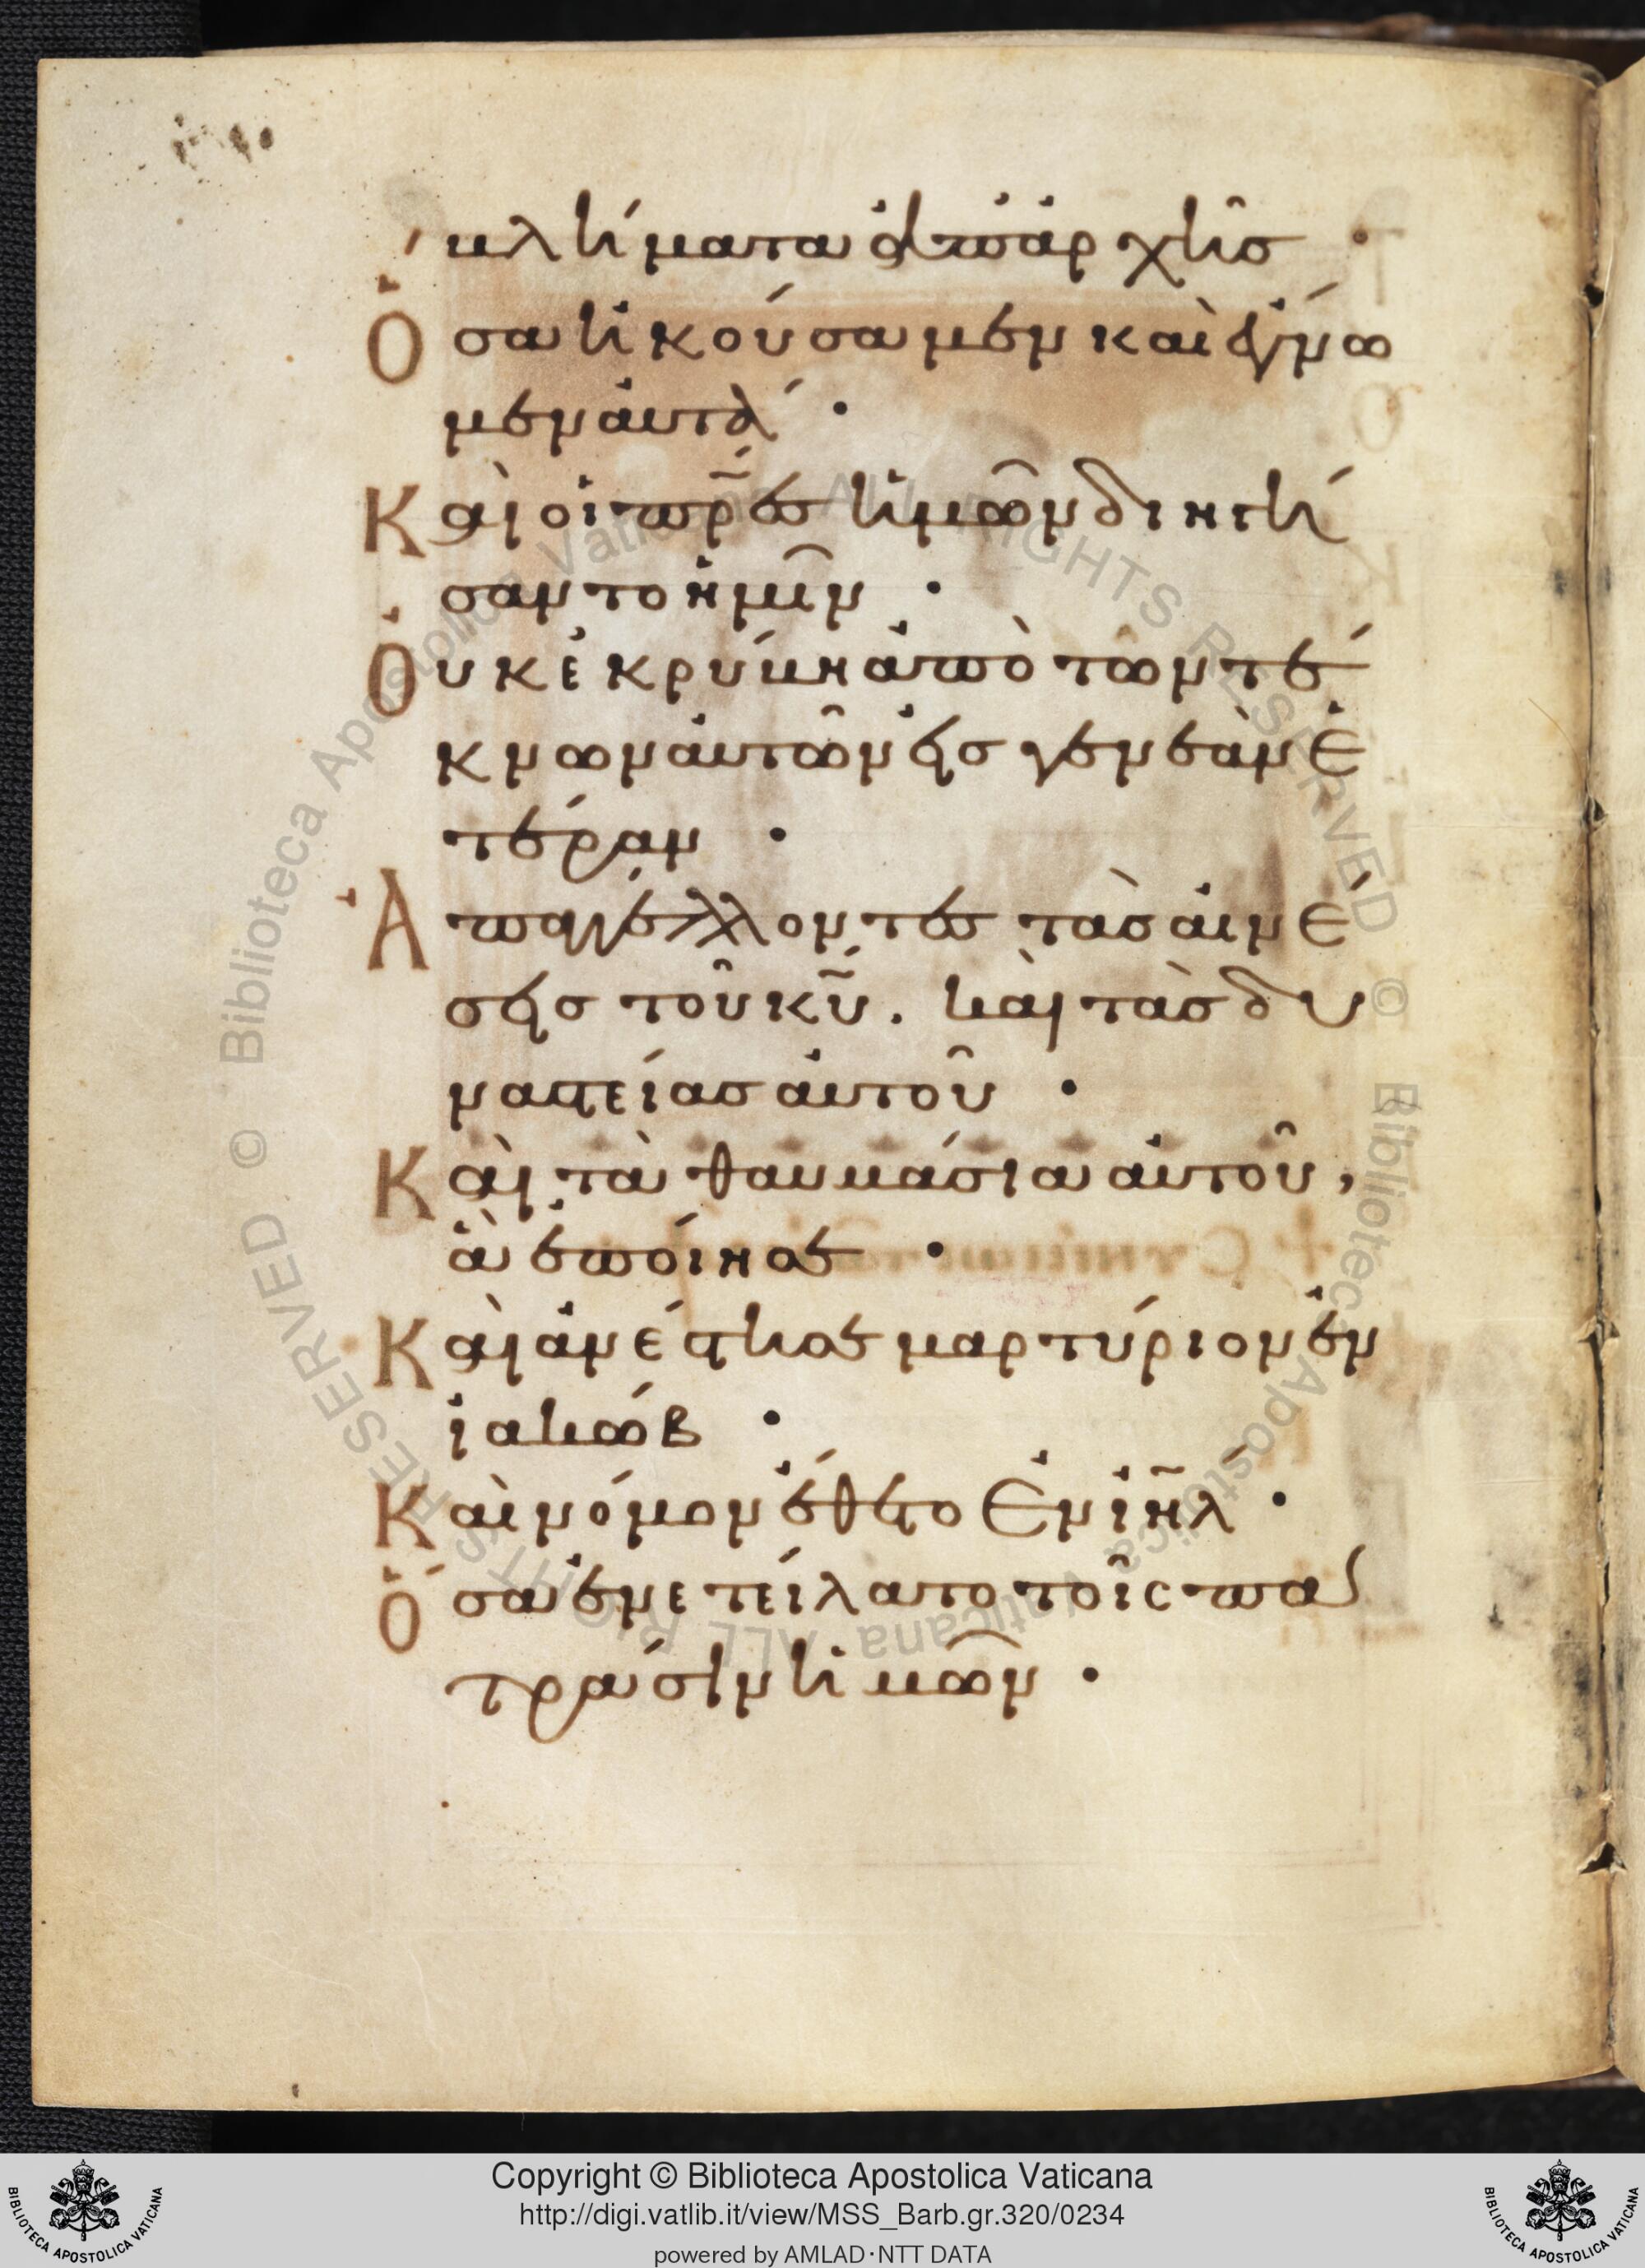 βλήματα ἀπ' ἀρχῆσ ·
Ὅσα ἠκούσαμεν καὶ ἔγνω
μεν αὐτά ·
Καὶ οἱ πρ̅εσ ἡμῶν διηγή
σαντο ἡμῖν ·
Οὐκ ἐκρύβη ἀπὸ τῶν τέ
κνων αὐτῶν εἰσ γενεὰν ἑ
τέραν ·
Ἀπαγγέλλοντεσ τὰσ αἰνέ
σεισ τοῦ κ̅υ. καὶ τὰσ δυ
ναστείασ αὐτοῦ ·
Καὶ τὰ θαυμάσια αὐτοῦ,
ἃ ἐποίησεν ·
Καὶ ἀνέστησεν μαρτύριον ἐν
ἰακώβ ·
Καὶ νόμον ἔθετο ἐν ἰη̅λ ·
Ὅσα ἐνετείλατο τοῖς πα
τράσιν ἡμῶν ·
Copyright © Biblioteca Apostolica Vaticana
http://digi.vatlib.it/view/MSS_Barb.gr.320/0234
powered by AMLAD·NTT DATA
BIBLIOTECA APOSTOLICA VATICANA
BIBLIOTECA APOSTOLICA VATICANA
© Biblioteca Apostolica Vaticana ALL RIGHTS RESERVED
© Biblioteca Apostolica Vaticana ALL RIGHTS RESERVED